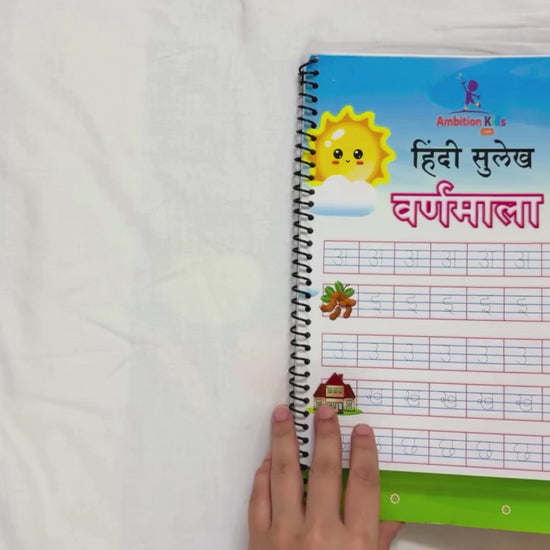 Ambition Kids
.com
हिंदी सुलेख
वर्णमाला
अ अ अ अ अ अ
ई ई ई ई ई
उ उ उ उ उ उ
ख ख ख ख ख
छ छ छ छ छ